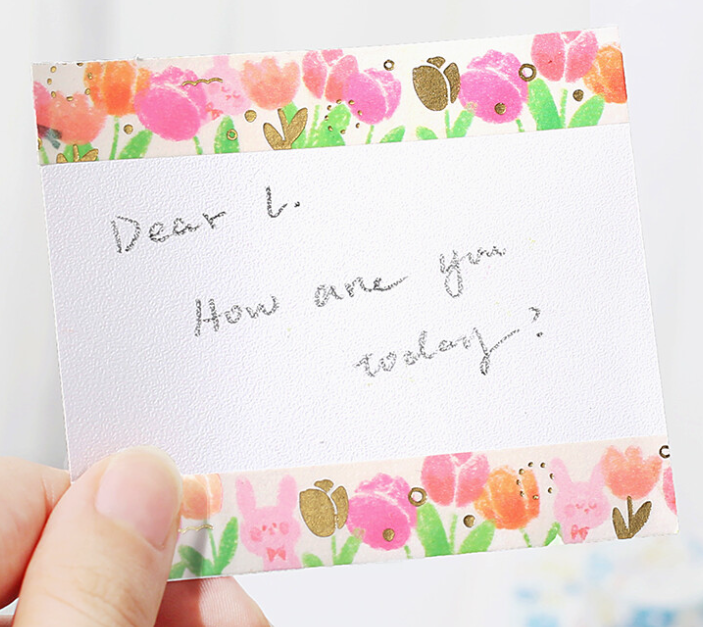 Dear L.
How are you
today?